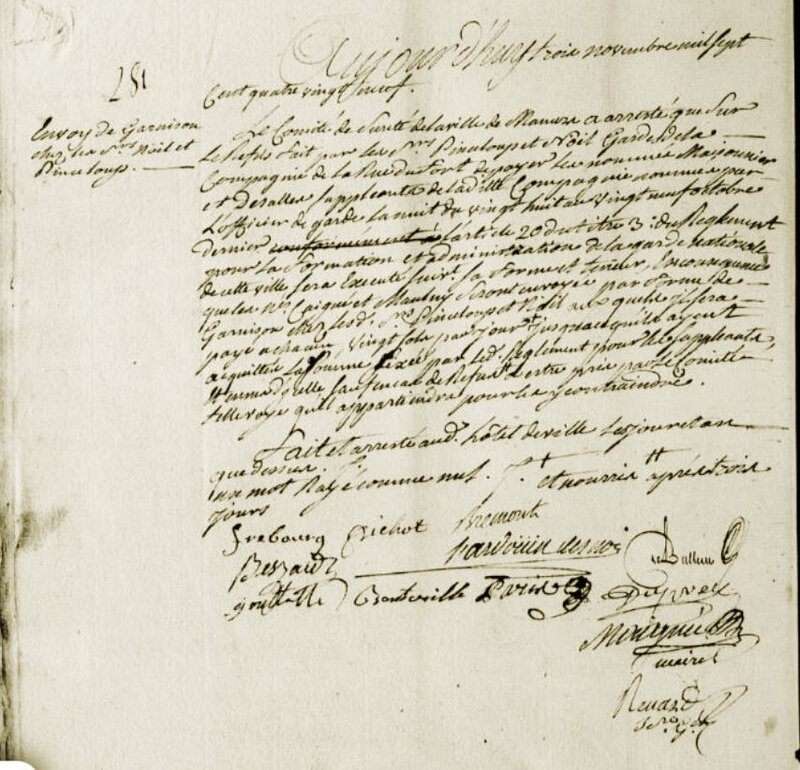 281
Envoy de Garnison
chez les Srs. Noël et
Pineloup.
Aujourd'huy trois novembre mil sept
Cent quatre vingt neuf.
Le Comité de Sureté de la ville de a arresté que Sur
Le Refus fait par les Srs. Pineloup et Noël Garde de la
Compagnie de la Rue du fort de payer les nommés Maisonnier
et Desalles Suppleants de laditte Compagnie nommés par
L'officier de garde la nuit du vingt huit au vingt neuf octobre
dernier conformément à l'article 20 du titre 3. du Reglement
pour la formation et administration de la garde Nationale
de cette ville sera Executé suivt. sa forme et teneur, En consequence
que les nés. et Seront envoyés par forme de
Garnison chez lesd. Srs. Pineloup et Noël aux quels il sera
payé a chacun vingt sols par jour † jusqu'a ce qu'ils ayent
acquitté La Somme fixée par led. Reglement pour les Suppleants,
†† sauf en cas de Refus a estre pris par le Comité
telle voye qu'il appartiendra pour les y contraindre.
Fait et arresté aud. hôtel de ville les jour et an
que dessus.
un mot Rayé comme nul. † et nourris †† après trois
jours
frebourg Richot Bremont
hardouin desnos
Bessard
Bonteville Paris
maire
Renard